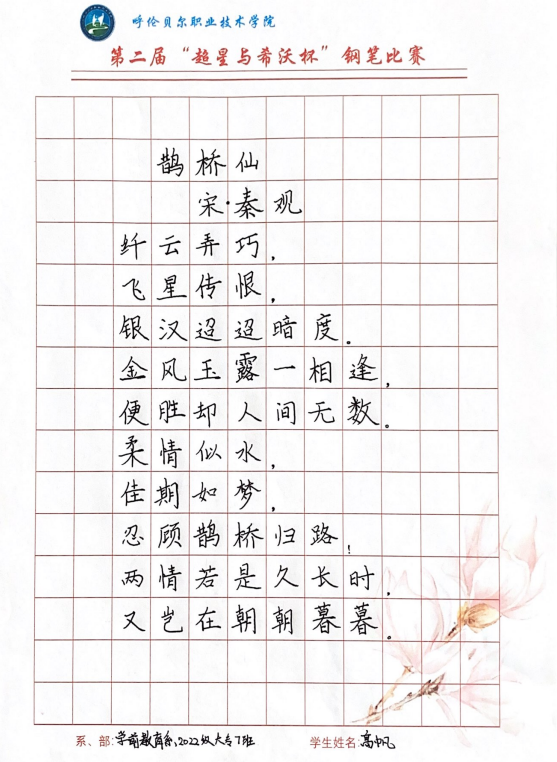 呼伦贝尔职业技术学院
第二届“超星与希沃杯”钢笔比赛
鹊桥仙
宋·秦观
纤云弄巧,
飞星传恨,
银汉迢迢暗度.
金风玉露一相逢,
便胜却人间无数.
柔情似水,
佳期如梦,
忍顾鹊桥归路!
两情若是久长时,
又岂在朝朝暮暮.
系、部:学前教育系,2022级大专7班 学生姓名:高中凡